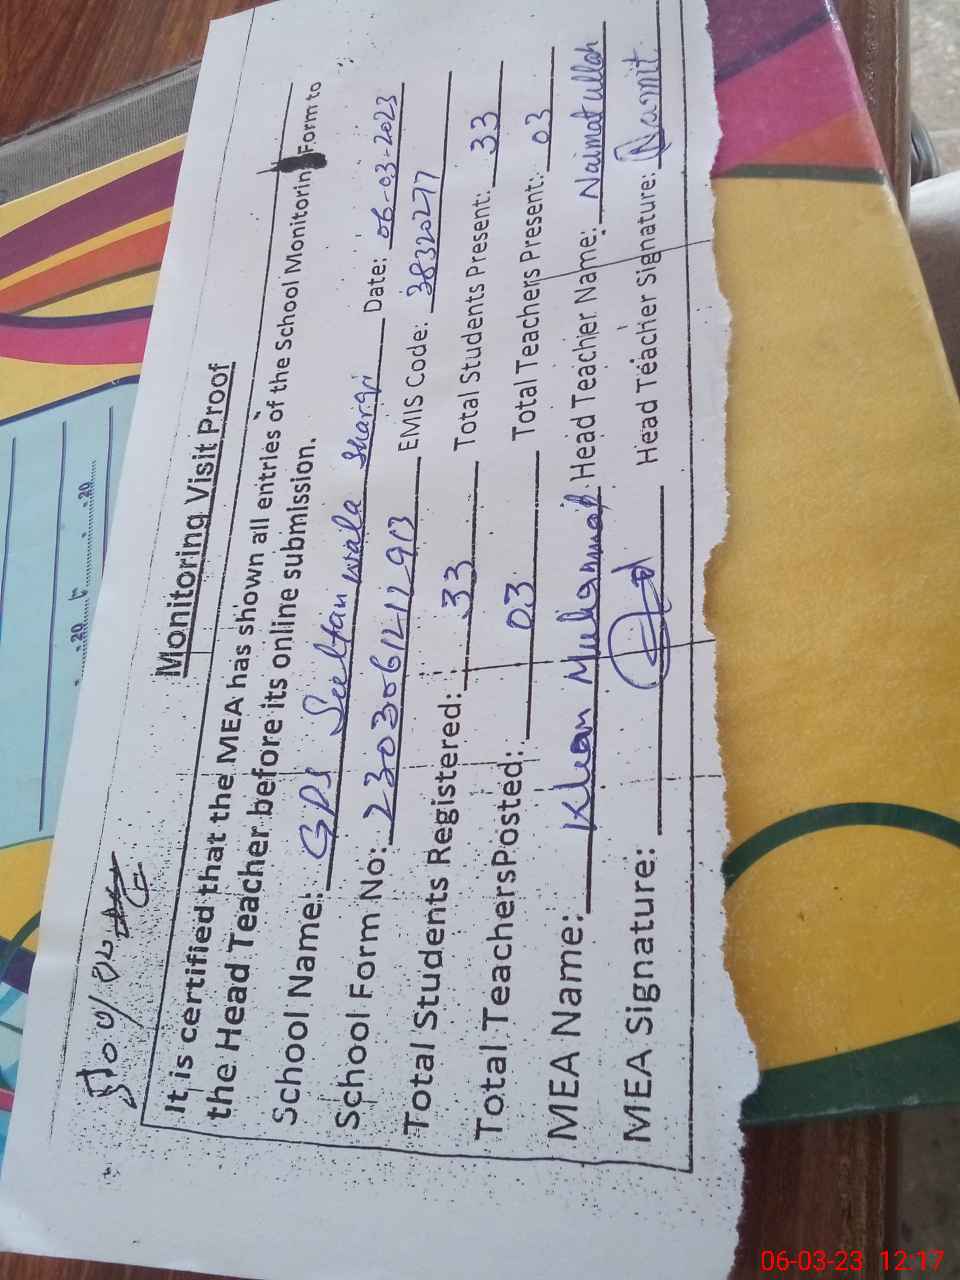 Monitoring Visit Proof
It is certified that the MEA has shown all entries of the School Monitoring Form to
the Head Teacher before its online submission.
School Name: GPS Sultan wala Sharqi Date: 06-03-2023
School Form No: EMIS Code: 38320277
Total Students Registered: 33 Total Students Present: 33
Total TeachersPosted: 03 Total Teachers Present: 03
MEA Name: Khan Muhammad Head Teacher Name: Naimatullah
MEA Signature: Head Teacher Signature: Namit
.20 .20
06-03-23 12:17